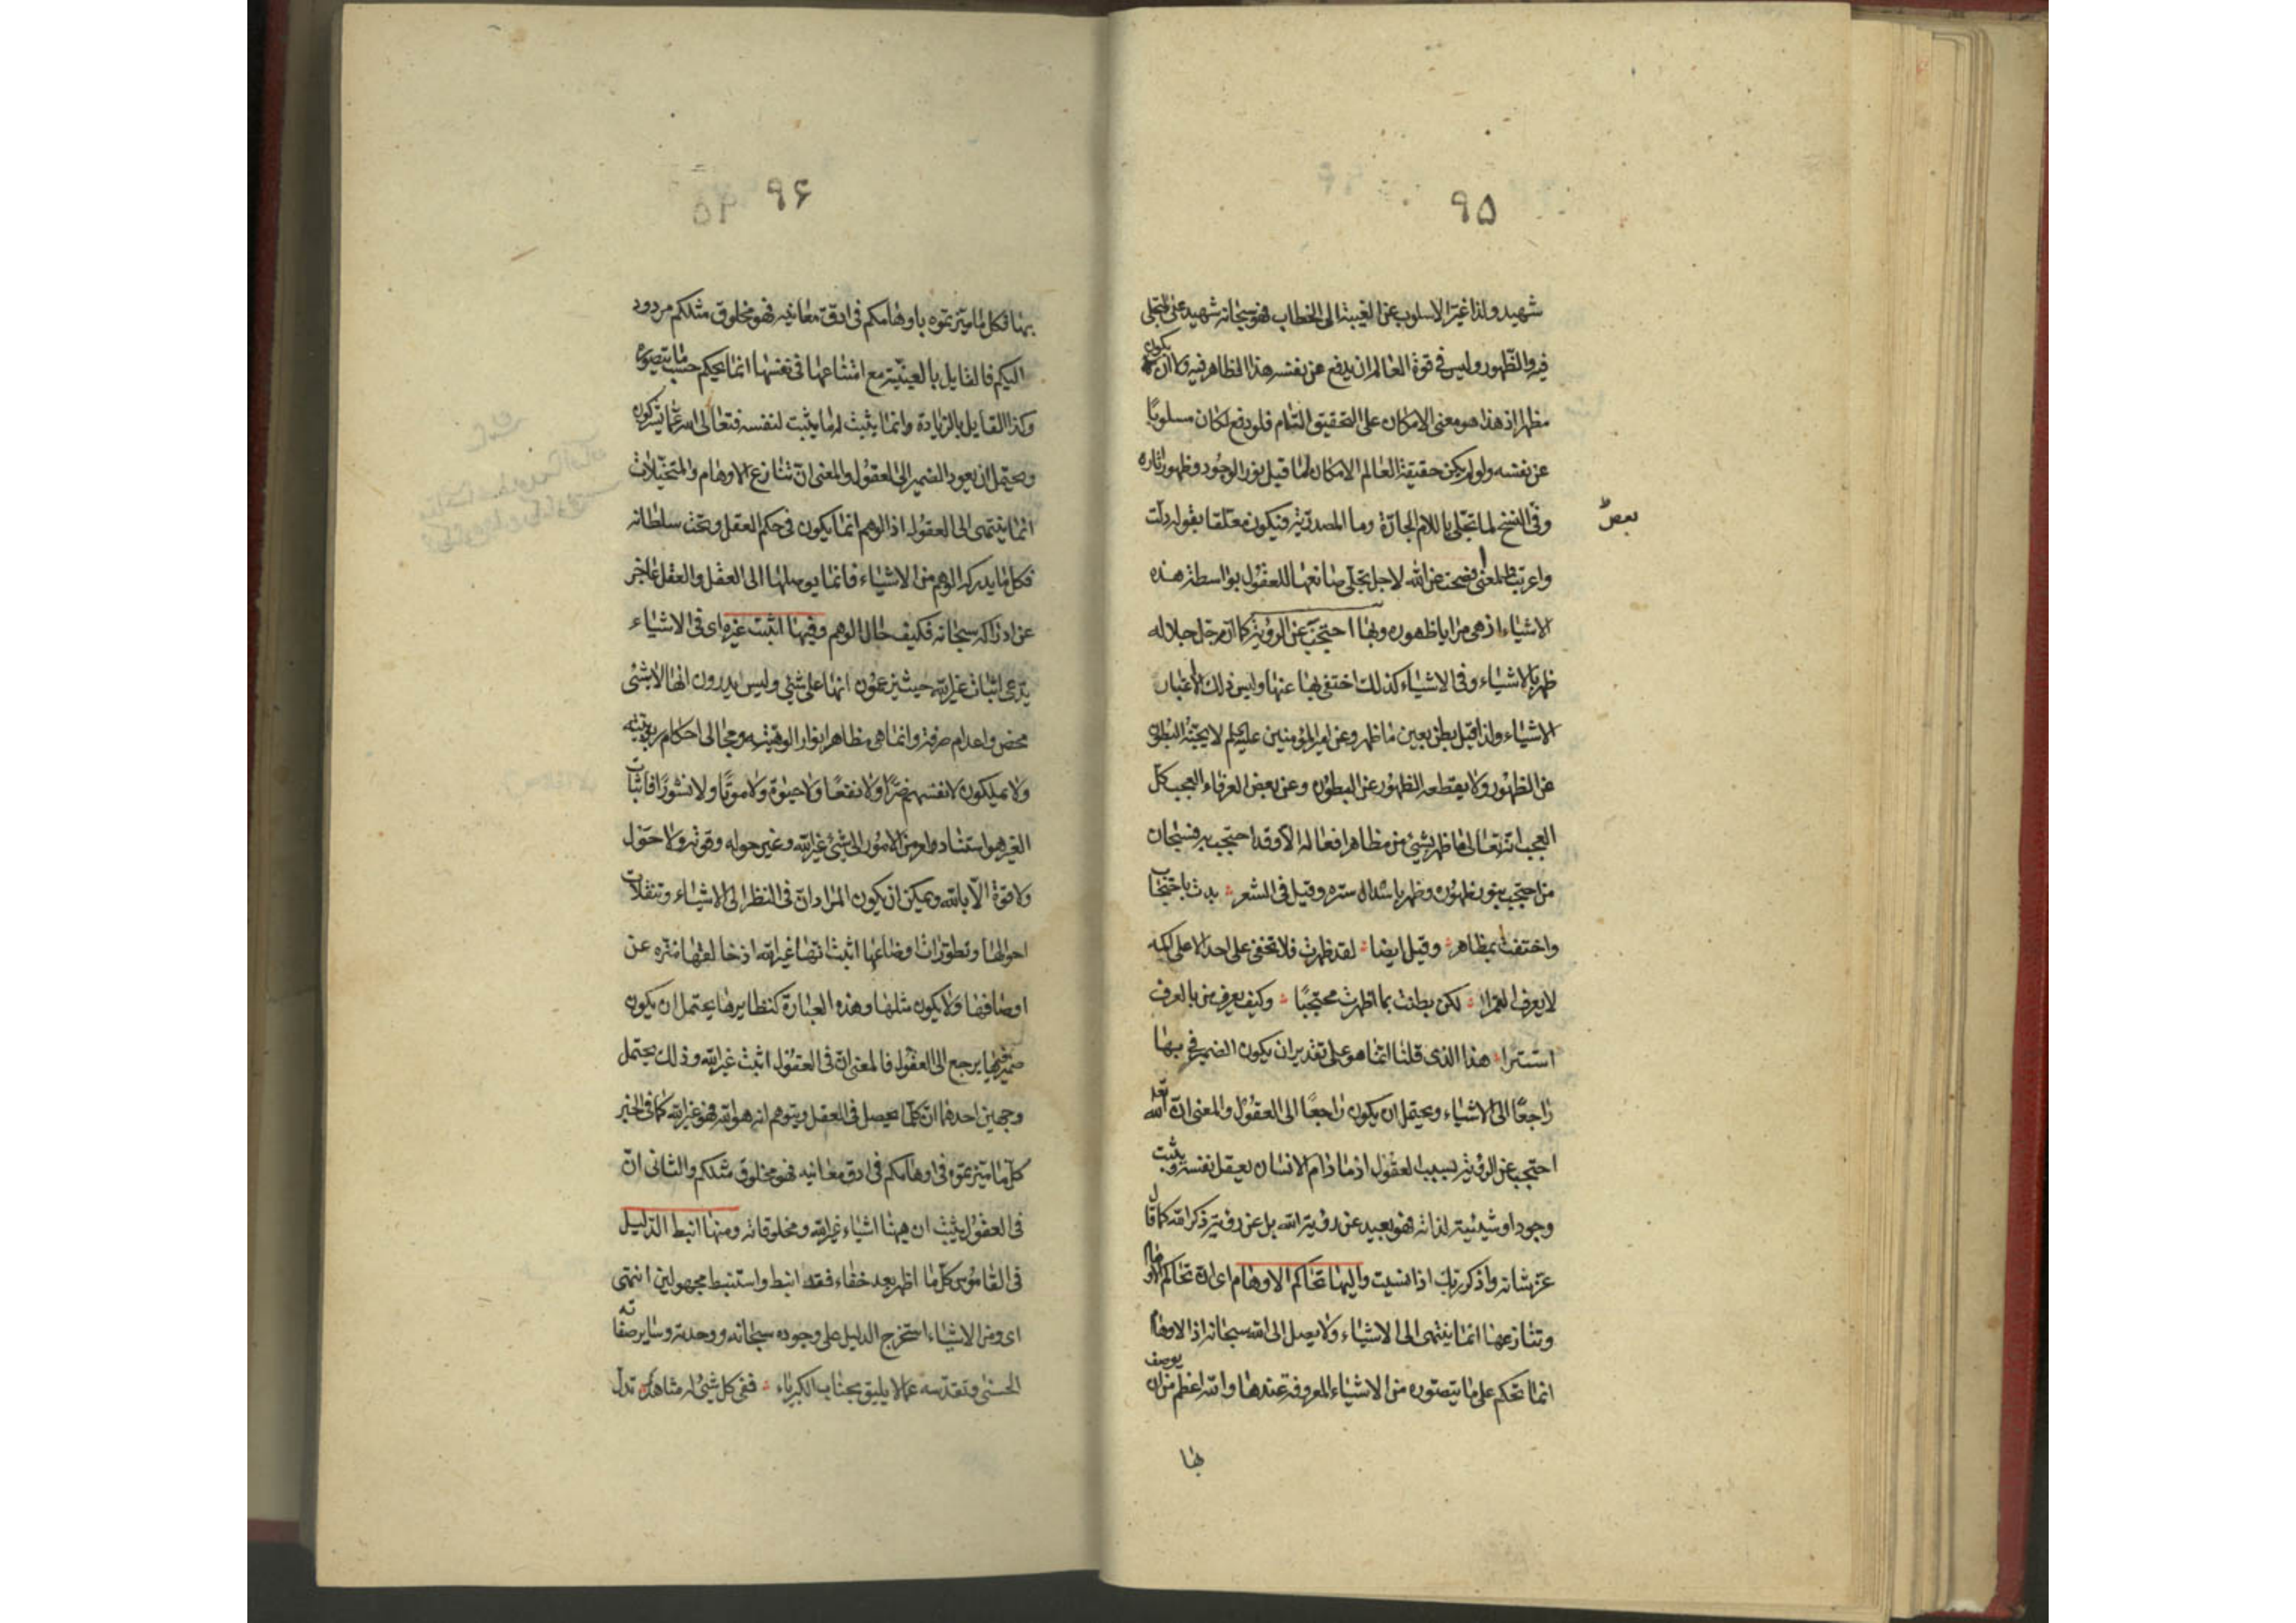 ۹۵
شهيد ولذا غيّر الاسلوب عن الغيبة الى الخطاب فهو سبحانه شهيد على التجلى
فيه والظهور وليس فى قوة العالم ان يدفع عن نفسه هذا الظاهر فيه ولا ان يكون
مظهرا اذ هذا هو معنى الامكان على التحقيق التام فلو دفع لكان مسلوبًا
عن نفسه ولو لم يكن حقيقة العالم الامكان لما قبل نور الوجود وظهور اثاره
وفى النسخ لما تجلى باللام الجارّة وما المصدريّة فيكون معلقا بقوله دلّت
بعض
واعربت والمعنى افصحت عن الله لاجل تجلى صانعها للعقول بواسطة هذه
الاشياء اذ هى مرايا ظهوره وبها احتجب عن الرؤية كما انه جل جلاله
ظهر بالاشياء وفى الاشياء كذلك اختفى بها عنها وليس ذلك لاغيار
الاشياء ولذا قيل بطن بعين ما ظهر وعن امير المؤمنين عليه السلام لا يجنّه البطون
عن الظهور ولا يقطعه الظهور عن البطون وعن بعض العرفاء العجب كل
العجب انه تعالى ما ظهر بشئ من مظاهر افعاله الا وقد احتجب به فسبحان
من احتجب بنور ظهوره وظهر باسدال ستره وقيل فى الشعر بدت باحتجاب
واختفت بمظاهر وقيل ايضا لقد ظهرت فلا تخفى على احد الا على اكمه
لا يعرف القمرا لكن بطنت بما اظهرت محتجبًا وكيف يعرف من بالعرف
استترا هذا الذى قلنا انما هو على تقدير ان يكون الضمير فى بها
راجعًا الى الاشياء ويحتمل ان يكون راجعًا الى العقول والمعنى ان الله تعه
احتجب عن الرؤية بسبب العقول اذ ما دام الانسان يعقل نفسه ويثبت
وجودا وشيئية لذاته فهو بعيد عن رؤية الله بل عن رؤية ذكر الله كما قال
عز شانه واذكر ربك اذا نسيت واليها تحاكم الاوهام اى ان تحاكم الاوهام
وتنازعها انما ينتهى الى الاشياء ولا يصل الى الله سبحانه اذ الاوهام
انما تحكم على ما يتصوره من الاشياء المعروفة عندها والله اعظم من ان يوصف
بها
۹۶
بها فكل ما ميّزتموه باوهامكم فى ادقّ معانيه فهو مخلوق مثلكم مردود
اليكم فالقايل بالعينيّة مع امتناعها فى نفسها انما يحكم حسب ما يتصوره
وكذا القايل بالزيادة وانما يثبت له ما يثبت لنفسه فتعالى الله عما يشركون
ويحتمل ان يعود الضمير الى العقول والمعنى ان تنازع الاوهام والمتخيلات
انما ينتهى الى العقول اذ الوهم انما يكون فى حكم العقل وتحت سلطانه
فكل ما يدركه الوهم من الاشياء فانما يوصلها الى العقل والعقل عاجز
عن ادراكه سبحانه فكيف حال الوهم وفيها اثبت غيره اى فى الاشياء
يدعى اثبات غير الله حيث يزعمون انها على شئ وليس يدرون انها لا بشئ
محض واعدام صرفة وانما هى مظاهر انوار الوهيته ومجالى احكام ربوبيته
ولا يملكون لانفسهم ضرًّا ولا نفعًا ولا حيوة ولا موتًا ولا نشورًا فاثبات
الغير هو استناد امر من الامور الى شئ غير الله وغير حوله وقوته ولا حول
ولا قوة الا بالله ويمكن ان يكون المراد ان فى النظر الى الاشياء وتنقلات
احوالها وتطورات اوضاعها اثبت انها غير الله اذ خالقها منزه عن
اوصافها ولا يكون مثلها وهذه العبارة كنظايرها يحتمل ان يكون
ضميرها يرجع الى العقول فالمعنى ان فى العقول اثبت غير الله وذلك يحتمل
وجهين احدهما ان كلما يحصل فى العقل ويتوهم انه هو الله فهو غير الله كما فى الخبر
كل ما ميّزتموه فى اوهامكم فى ادق معانيه فهو مخلوق مثلكم والثانى ان
فى العقول يثبت ان هيهنا اشياء غير الله ومخلوقاته ومنها انبط الدليل
فى القاموس كلما اظهر بعد خفاء فقد انبط واستنبط مجهولين انتهى
اى ومن الاشياء استخرج الدليل على وجوده سبحانه ووحدته وساير صفاته
الحسنى وتقدسه عما لا يليق بجناب الكبرياء ففى كل شئ له مشاهد تدل